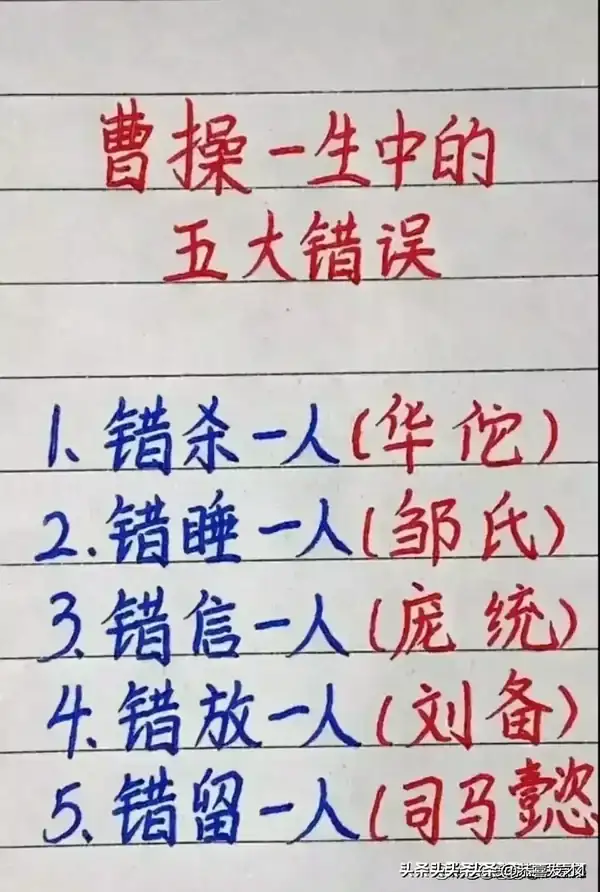 曹操一生中的
五大错误
1、错杀一人(华佗)
2.错睡一人(邹氏)
3、错信一人(庞统)
4、错放一人(刘备)
5、错留一人(司马懿